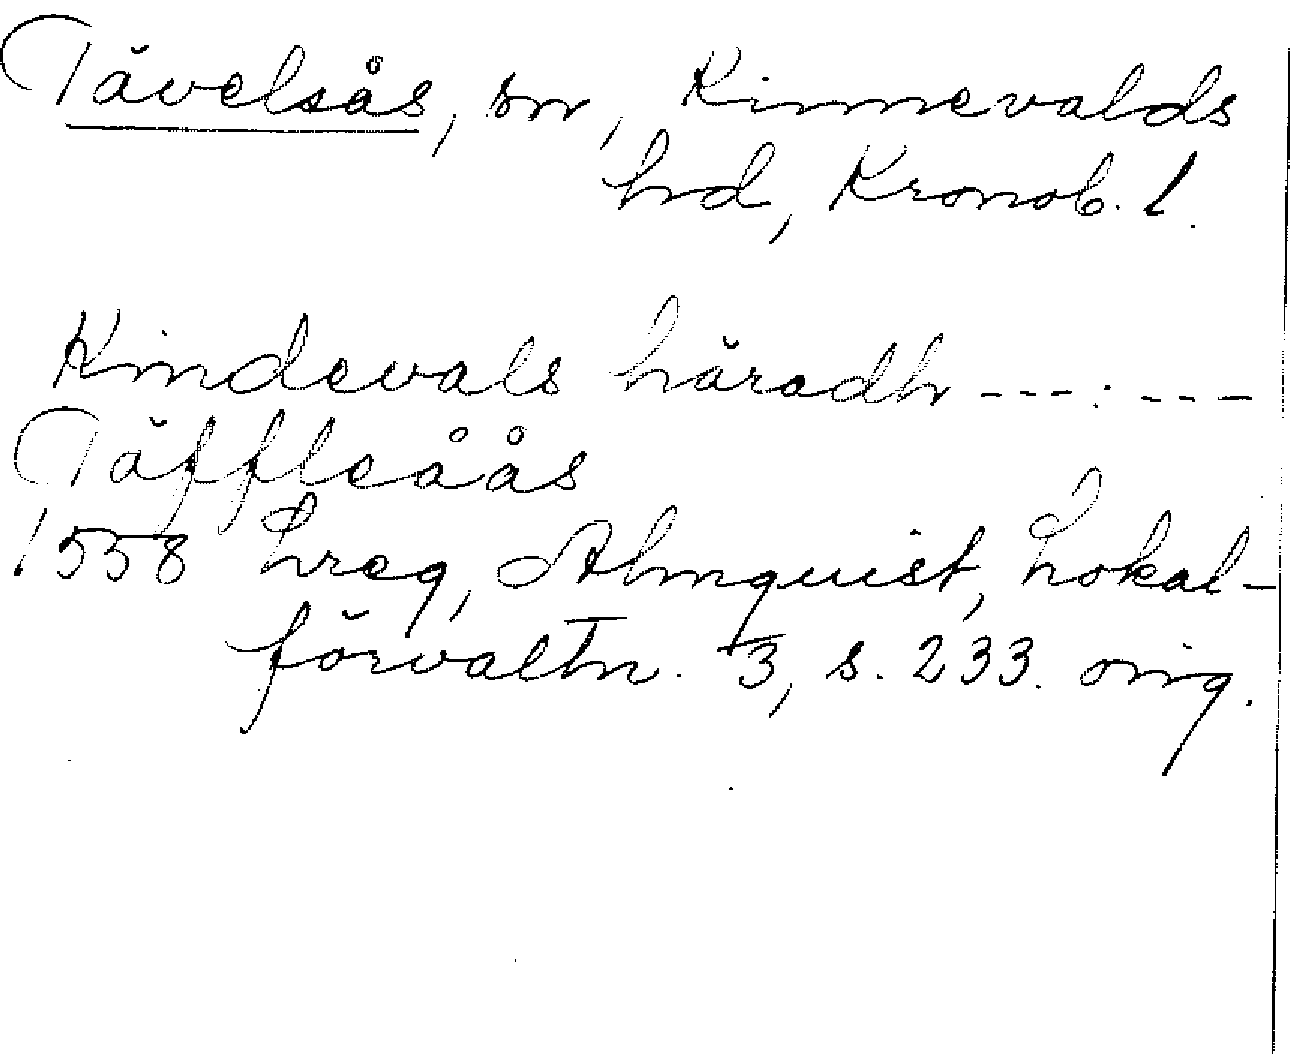 Tävelsås, sn, Kinnevalds
hd, Kronob. l.
Kindevals häradh ---:---
Täffleåås
1558 Lreg, Almquist, Lokal-
förvaltn. 3, s. 233. orig.